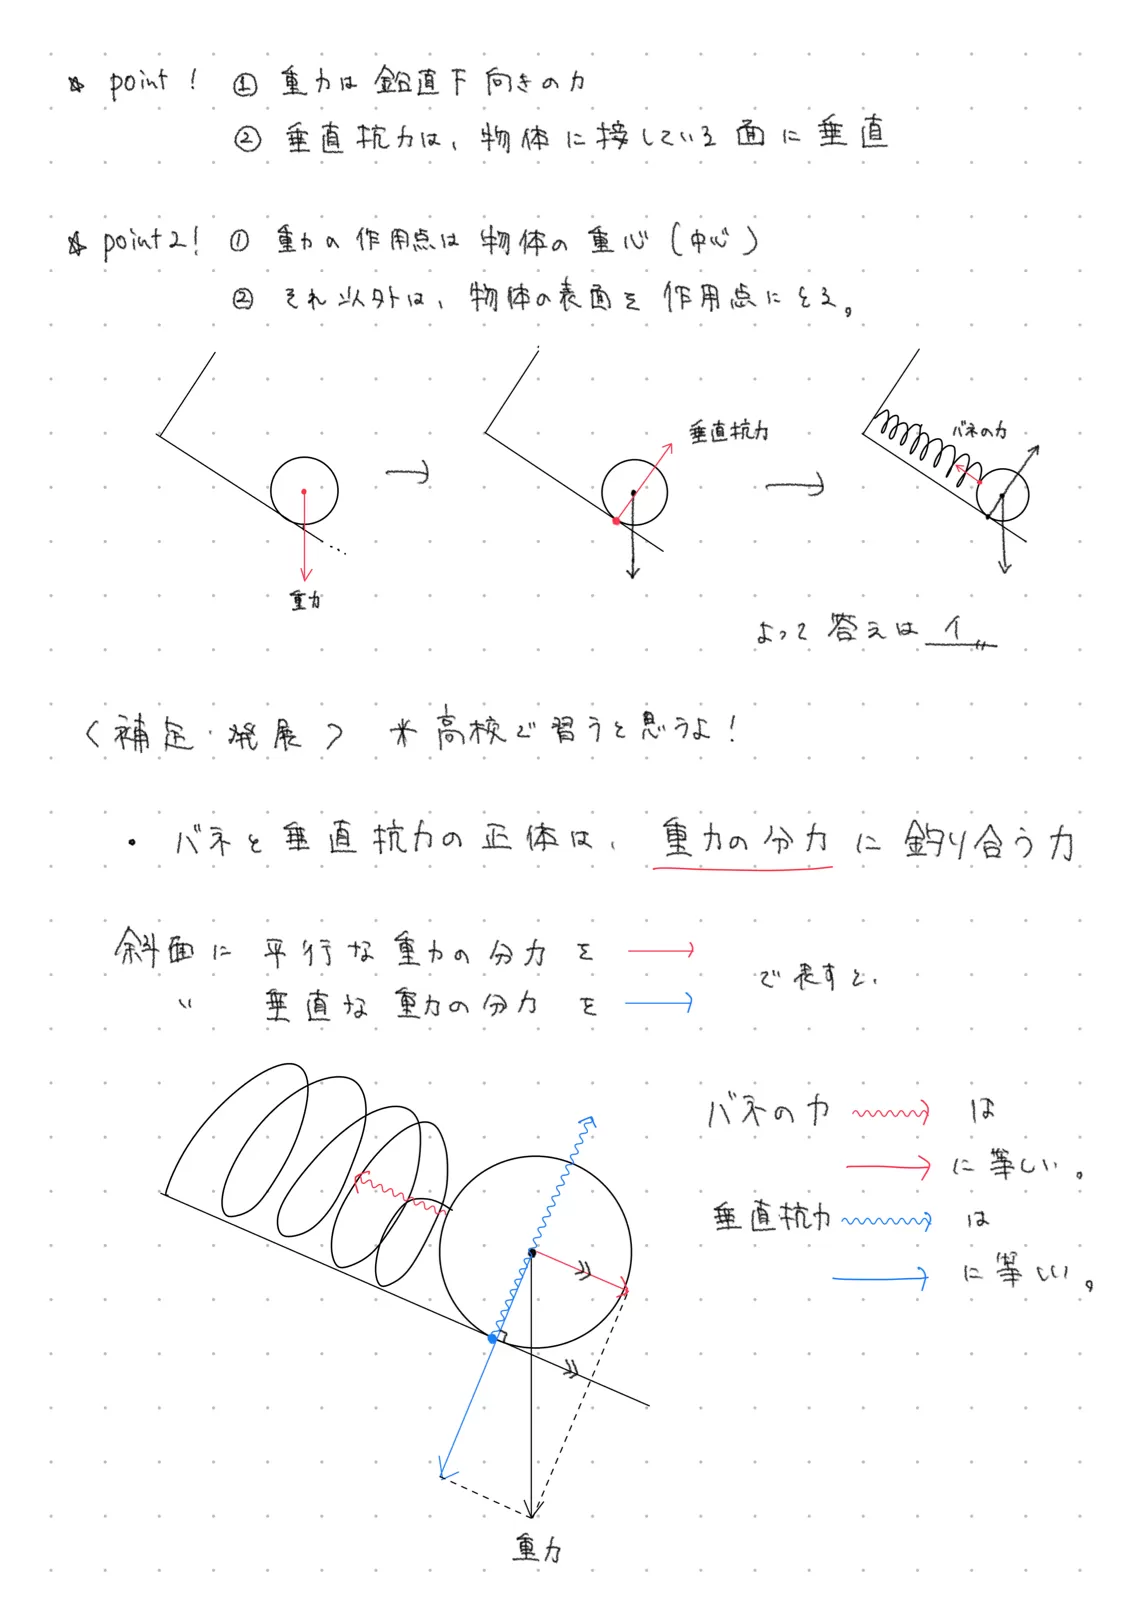 ☆ point! ① 重力は鉛直下向きの力
② 垂直抗力は、物体に接している面に垂直
☆ point2! ① 重力の作用点は物体の重心(中心)
② それ以外は、物体の表面を作用点にとる。
垂直抗力
バネの力
重力
よって答えはイ
<補足・発展> * 高校で習うと思うよ!
・バネと垂直抗力の正体は、重力の分力に釣り合う力
斜面に平行な重力の分力を →
〃 垂直な重力の分力を →
で表すと、
バネの力 → は
→ に等しい。
垂直抗力 → は
→ に等しい。
重力